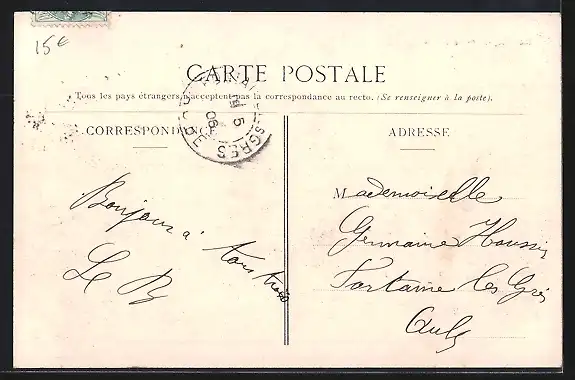 15€
CARTE POSTALE
Tous les pays étrangers n'acceptent pas la correspondance au recto. (Se renseigner à la poste).
CORRESPONDANCE
ADRESSE
Bonjour à tous trois
Le B
Mademoiselle
Germaine Houssin
Fontaine les Grès
Aube